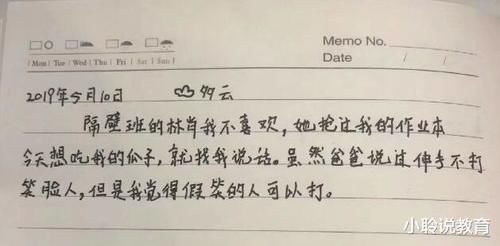 Memo No.
Mon Tue Wed Thu Fri Sat Sun
Date / /
2019年5月10日 多云
隔壁班的林肖我不喜欢，她抢过我的作业本
今天想吃我的瓜子，就找我说话。虽然爸爸说过伸手不打
笑脸人，但是我觉得假笑的人可以打。
小聆说教育